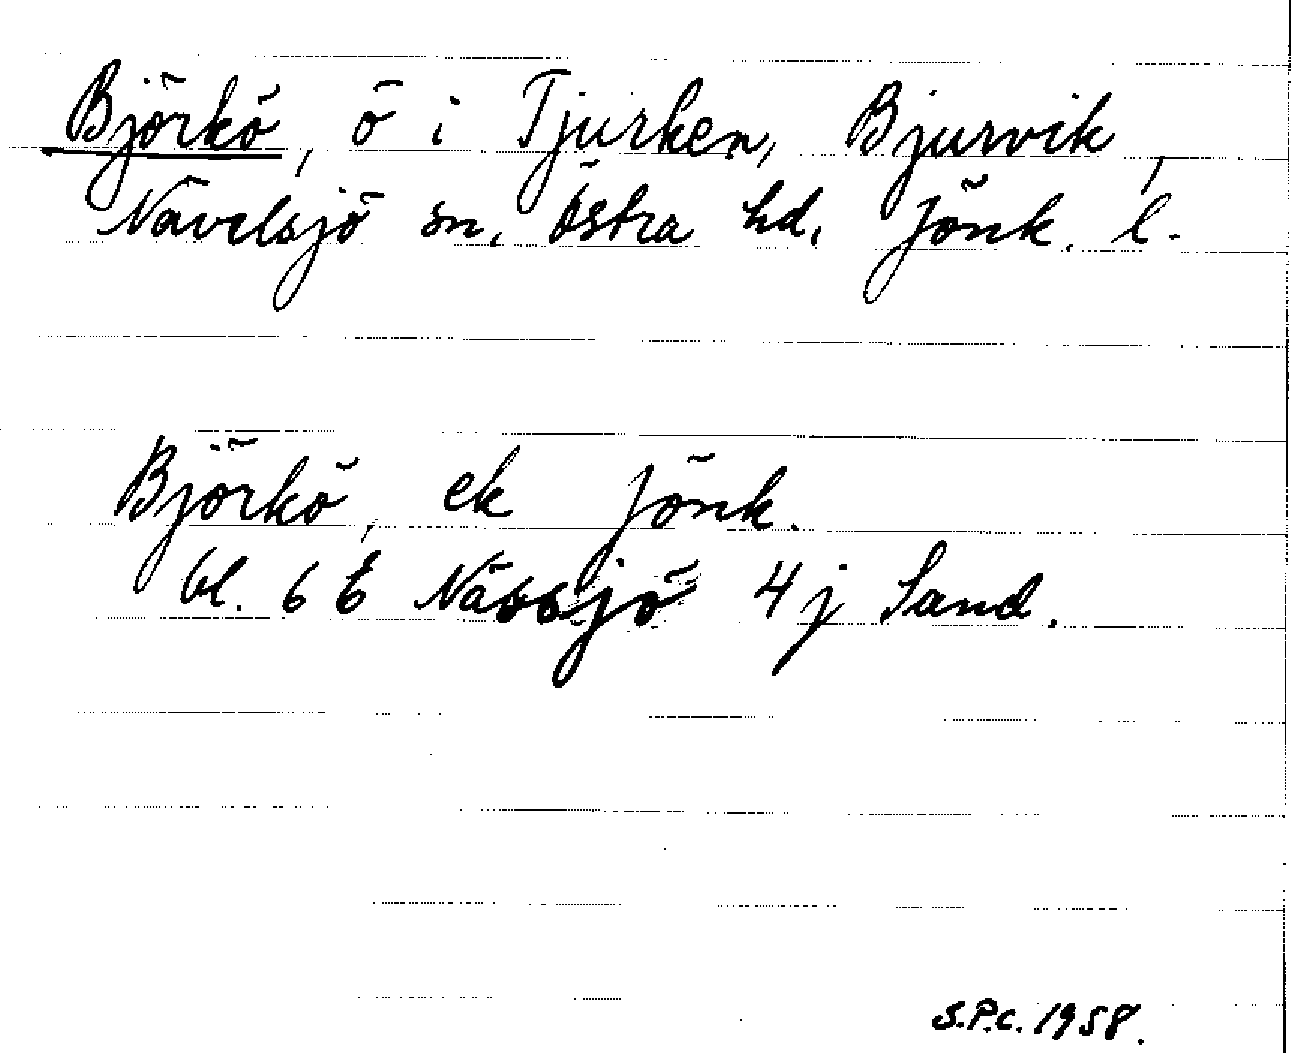 Björkö, ö i Tjurken, Bjurvik,
Nävelsjö sn, Östra hd, Jönk. l.
Björkö, ek Jönk.
bl. 6 E Nässjö 4 j Sand.
S.P.C. 1958.